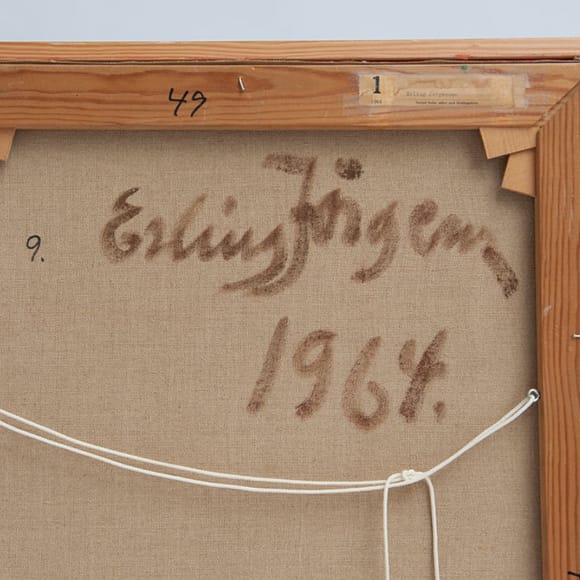 49
1
1964
Erling Jørgensen
9.
Erling Jörgensen
1964.